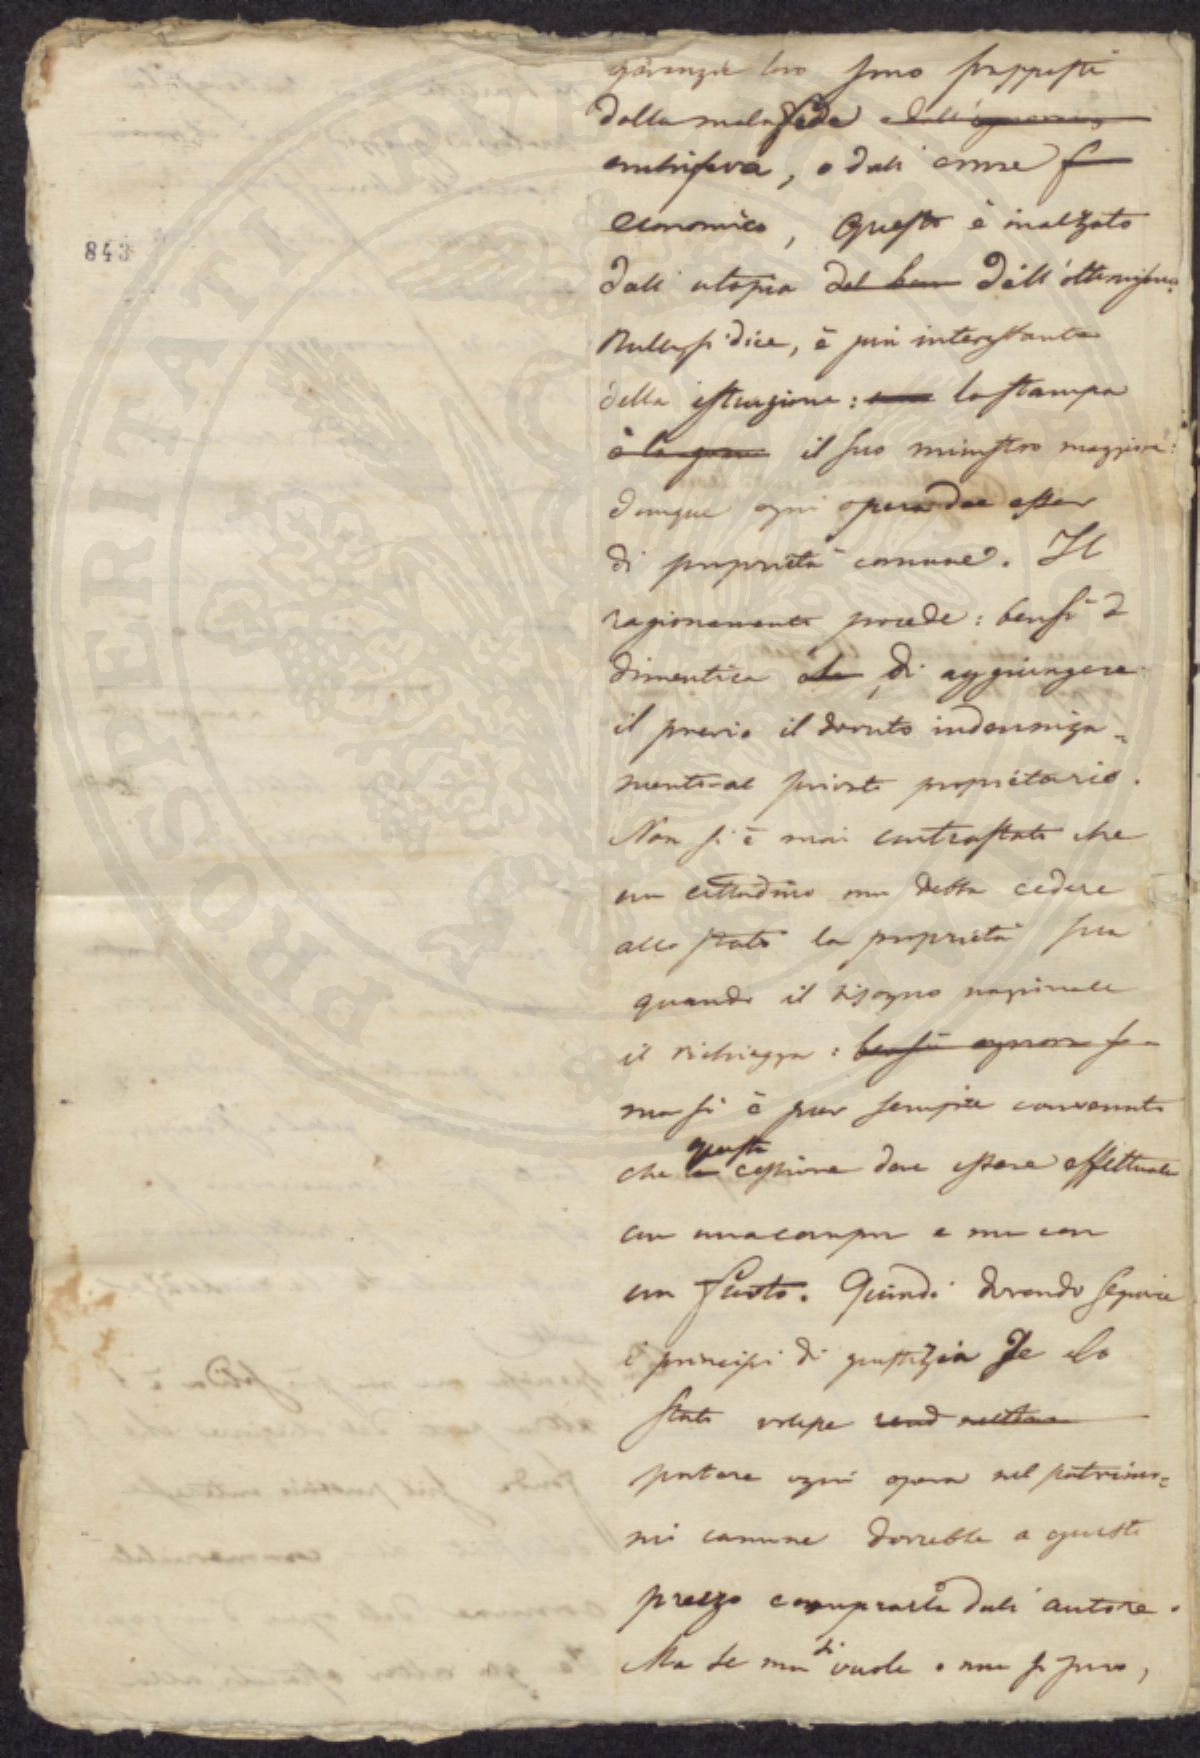 garanzia loro sono frapposti
dalla mala fede e dall'ignoranza
, o dall'
economico, Questo è inalzato
dall' utopia del bene dell'ottimismo.
Nulla si dice, è piu interessante
della istruzione: la stampa
è la il suo ministro maggiore:
dunque ogni opera dee esser
di proprietà comune. Il
ragionamento procede: bensì
dimentica che di aggiungere
il previo il dovuto indennizza=
mento al privato proprietario.
Non si è mai contrastato che
un cittadino non debba cedere
allo stato la proprietà sua
quando il bisogno nazionale
il richiegga: bensì ognora
ma si è pur sempre convenuto
che la questa cessione deve essere effettuata
con una compra e non con
un furto. Quindi dovendo seguire
i principi di giustizia se lo
stato volesse
portare ogni opera nel patrimo=
nio comune dovrebbe a giusto
prezzo comprarla dall' autore.
Ma se non si vuole o non si puo,
843
PROSPERITATI PUBLICAE